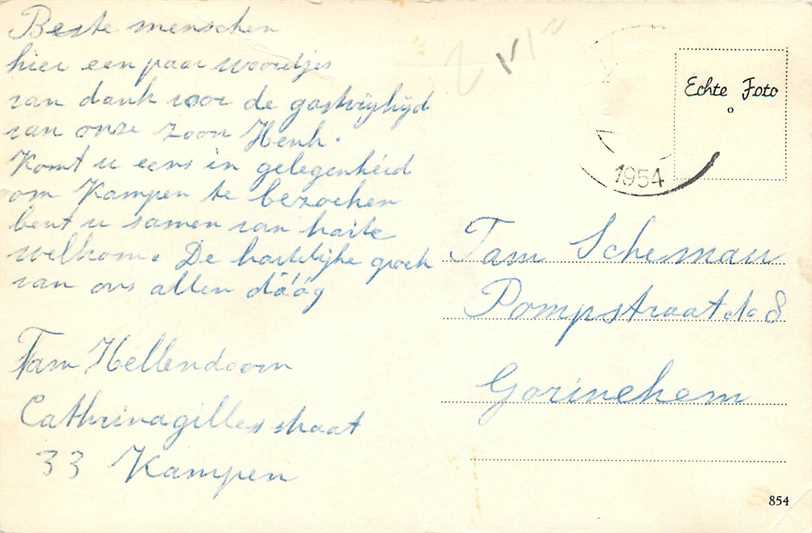 Beste menschen
hier een paar woordjes
van dank voor de gastvrijhijd
van onze zoon Henk.
Komt u eens in gelegenheid
om Kampen te bezoeken
bent u samen van harte
welkom. De hartelijke groet
van ons allen dáág
Fam Hellendoorn
Cathrinagillesstraat
33 Kampen
Echte Foto
1954
Fam Scheman
Pompstraat No 8
Gorinchem
854